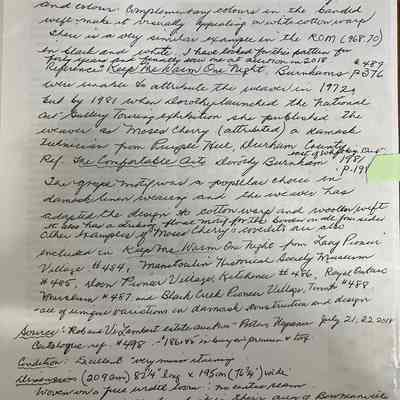 and colour. Complementary colours in the banded
weft make it visually appealing on white cotton warp
There is a very similar example in the ROM (968.70)
in black and white. I have looked for this pattern for
forty years and finally saw one at auction in 2018
Reference Keep Me Warm One Night, Burnhams #489 P 376
were unable to attribute the weaver in 1972,
but by 1981 when Dorothy launched the National
Art Gallery Touring exhibition she published the
weaver as Moses Cherry (attributed) a damask
technician from Purple Hill, Durham County
east of Whitby Ont
Ref. The Comfortable Arts Dorothy Burnham 1981
P. 191
The grape motif was a popular choice in
damask linen weaving and the weaver has
adapted the design to cotton warp and woollen weft
It also has a floral motif for the border on side
Other examples of Moses Cherry's coverlets are also
included in Keep Me Warm One Night from Lang Pioneer
Village #484, Manitoulin Historical Society Museum
#485, Doon Pioneer Village, Kitchener #486, Royal Ontario
Museum #487 and Black Creek Pioneer Village, Toronto #488
- all of unique variations in damask construction and design
Source: Robert V. Lambert estate auction - Potters July 21, 22 2018
Catalogue ref. #498 - buyers premium & tax
Condition: Excellent very minor staining
Dimensions (209 cm) 82 1/4" long x 195 cm (76 3/4") wide
Woven on a full width loom: no centre seam
area of Bowmanville